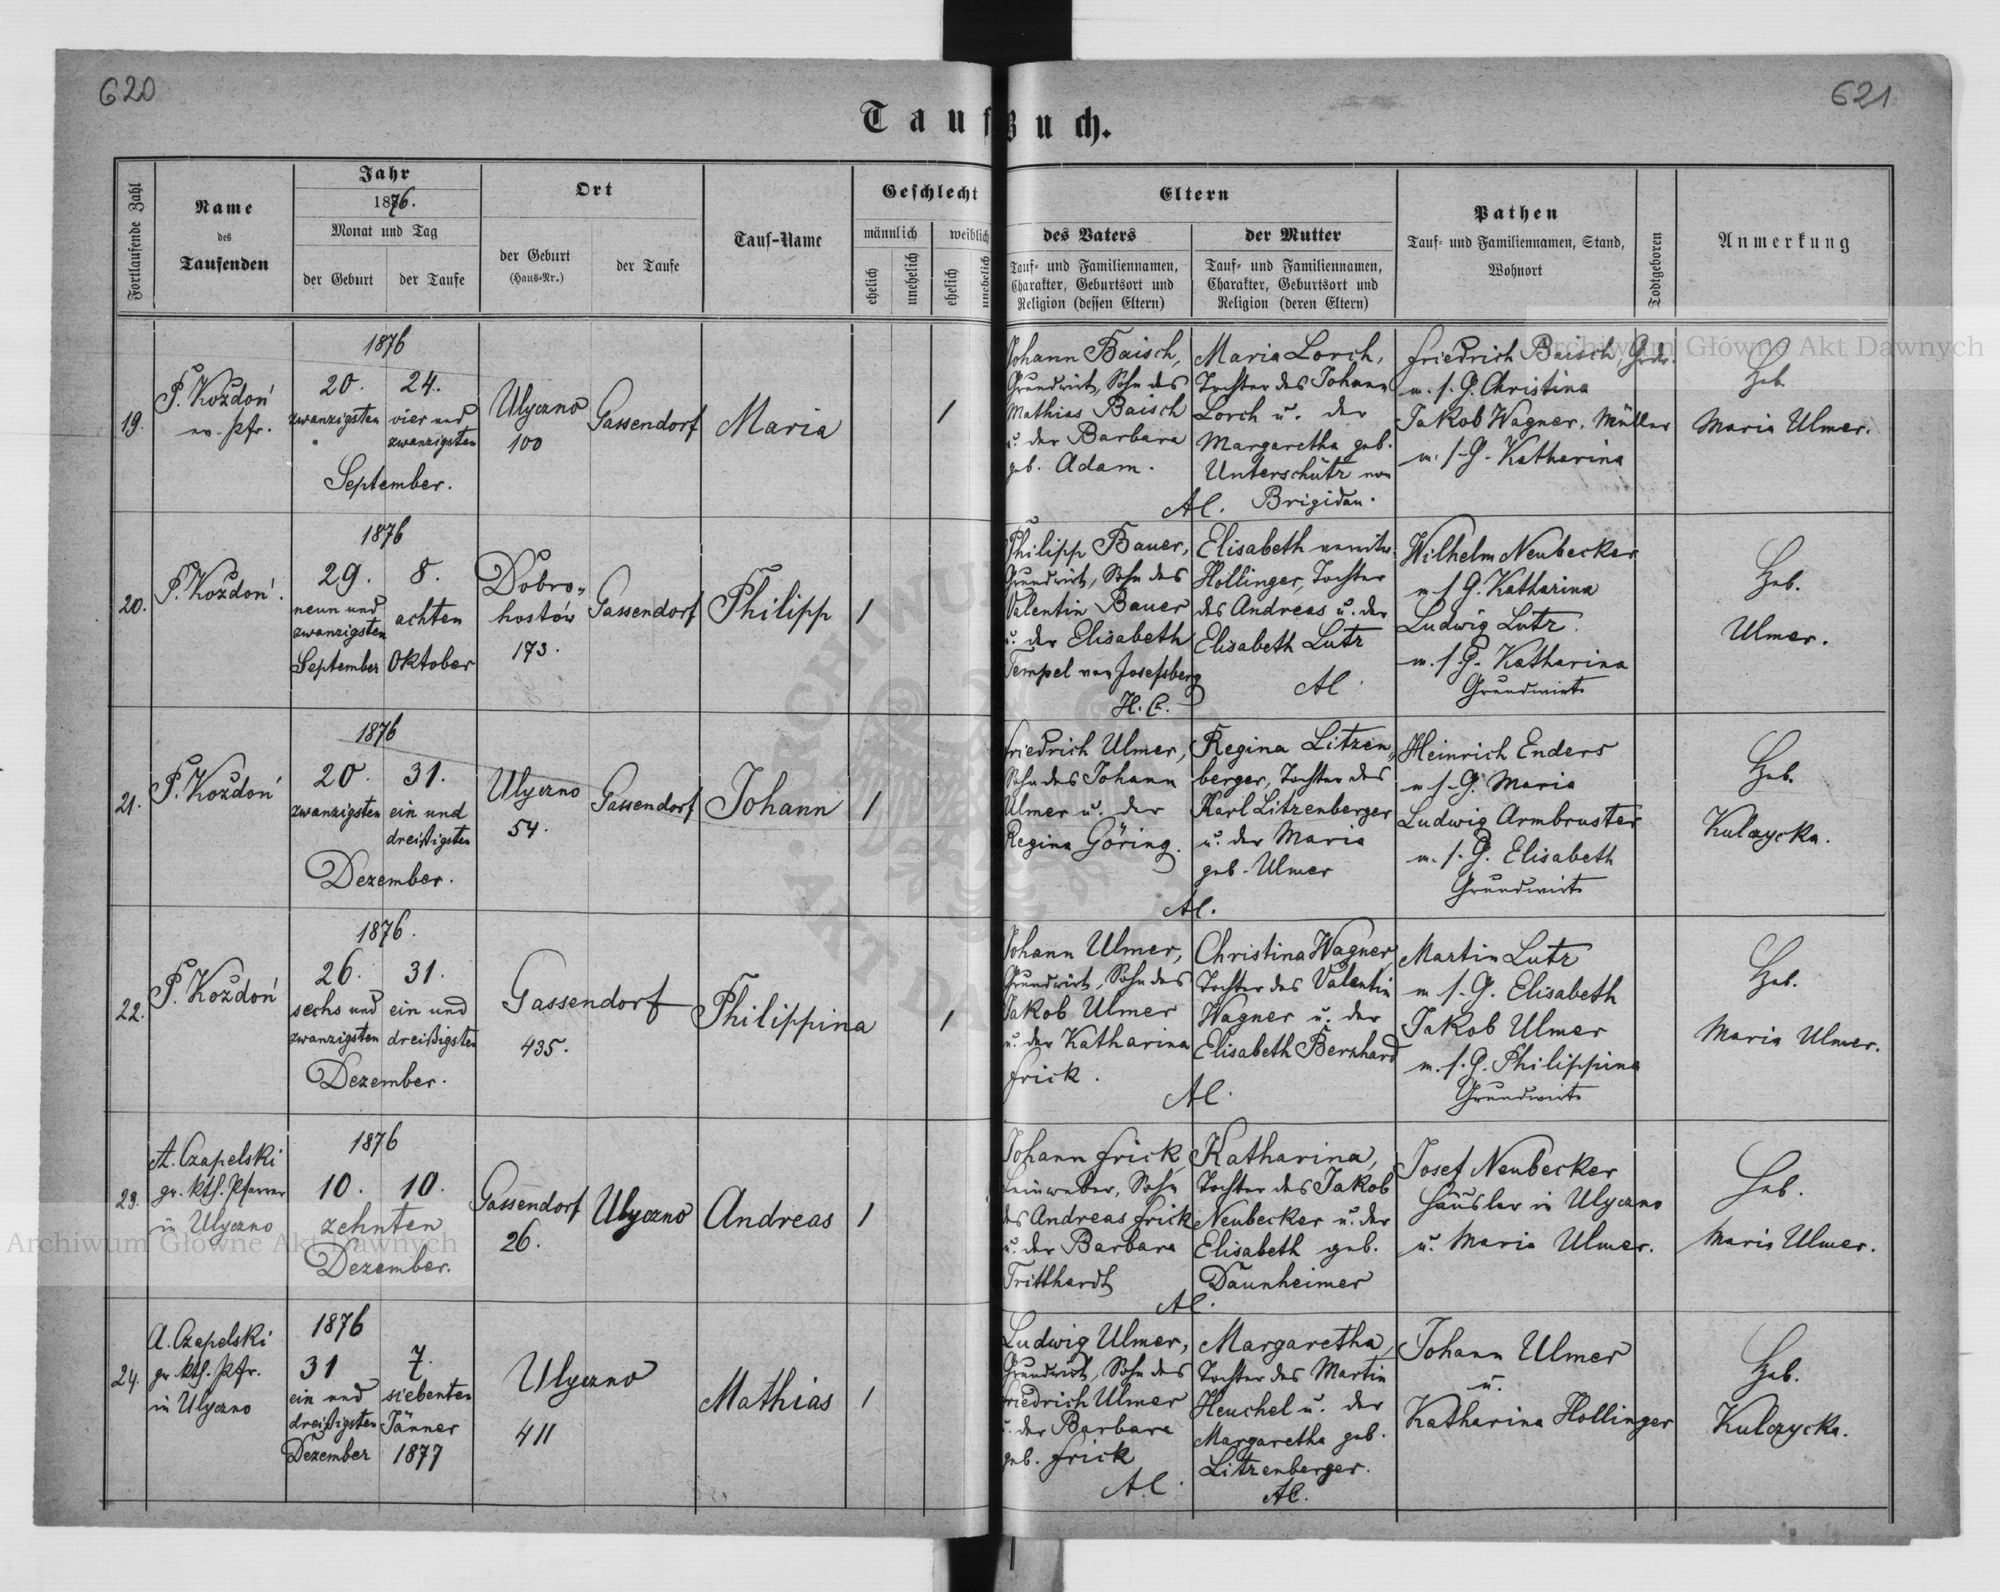 620
621
Taufbuch.
Fortlaufende Zahl
Name
des
Taufenden
Jahr
1876.
Monat und Tag
der Geburt
der Taufe
Ort
der Geburt
(Haus-Nr.)
der Taufe
Tauf-Name
Geschlecht
männlich
weiblich
ehelich
unehelich
ehelich
unehelich
Eltern
des Vaters
Tauf- und Familiennamen,
Charakter, Geburtsort und
Religion (dessen Eltern)
der Mutter
Tauf- und Familiennamen,
Charakter, Geburtsort und
Religion (deren Eltern)
Pathen
Tauf- und Familiennamen, Stand,
Wohnort
Todtgeboren
Anmerkung
19.
P. Koždoń
ev. Pfr.
1876
20.
zwanzigsten
24.
vier und
zwanzigsten
September.
Ulyczno
100
Gassendorf
Maria
1
Johann Baisch,
Grundwirt, Sohn des
Mathias Baisch
u. der Barbara
geb. Adam.
Maria Lorch,
Tochter des Johann
Lorch u. der
Margaretha geb.
Unterschütz von
Brigidau.
AC.
Friedrich Baisch Grdw.
m. s. G. Christina
Jakob Wagner, Müller
m. s. G. Katharina
Heb.
Maria Ulmer.
20.
P. Koždoń.
1876
29.
neun und
zwanzigsten
September
8.
achten
Oktober
Dobro-
hostów
173.
Gassendorf
Philipp
1
Philipp Bauer,
Grundwirt, Sohn des
Valentin Bauer
u. der Elisabeth
Tempel von Josefsberg
H. C.
Elisabeth verwitw.
Hollinger, Tochter
des Andreas u. der
Elisabeth Lutz
AC.
Wilhelm Neubecker
m. s. G. Katharina
Ludwig Lutz
m. s. G. Katharina
Grundwirte
Heb.
Ulmer.
21.
P. Koždoń
1876
20.
zwanzigsten
31.
ein und
dreißigsten
Dezember.
Ulyczno
54.
Gassendorf
Johann
1
Friedrich Ulmer,
Sohn des Johann
Ulmer u. der
Regina Göring.
Regina Litzen-
berger, Tochter des
Karl Litzenberger
u. der Maria
geb. Ulmer
AC.
Heinrich Enders
m. s. G. Maria
Ludwig Armbruster
m. s. G. Elisabeth
Grundwirte
Heb.
Kulczycka.
22.
P. Koždoń
1876.
26.
sechs und
zwanzigsten
31.
ein und
dreißigsten
Dezember.
Gassendorf
435.
Philippina
1
Johann Ulmer,
Grundwirt, Sohn des
Jakob Ulmer
u. der Katharina
Frick.
Christina Wagner
Tochter des Valentin
Wagner u. der
Elisabeth Bernhard
AC.
Martin Lutz
m. s. G. Elisabeth
Jakob Ulmer
m. s. G. Philippina
Grundwirte
Heb.
Maria Ulmer.
23.
A. Czapelski
gr. kth. Pfarrer
in Ulyczno
1876
10.
10.
zehnten
Dezember.
Gassendorf
26.
Ulyczno
Andreas
1
Johann Frick,
Leinweber, Sohn
des Andreas Frick
u. der Barbara
Tritthardt
Katharina,
Tochter des Jakob
Neubecker u. der
Elisabeth geb.
Daunheimer
AC.
Josef Neubecker
Häusler in Ulyczno
u. Maria Ulmer.
Heb.
Maria Ulmer.
24.
A. Czapelski
gr. kth. Pfr.
in Ulyczno
1876
31
ein und
dreißigsten
Dezember
7.
siebenten
Jänner
1877
Ulyczno
411
Mathias
1
Ludwig Ulmer,
Grundwirt, Sohn des
Friedrich Ulmer
u. der Barbara
geb. Frick
AC.
Margaretha,
Tochter des Martin
Heuchel u. der
Margaretha geb.
Litzenberger.
AC.
Johann Ulmer
u.
Katharina Hollinger
Heb.
Kulczycka.
Archiwum Główne Akt Dawnych
Archiwum Główne Akt Dawnych